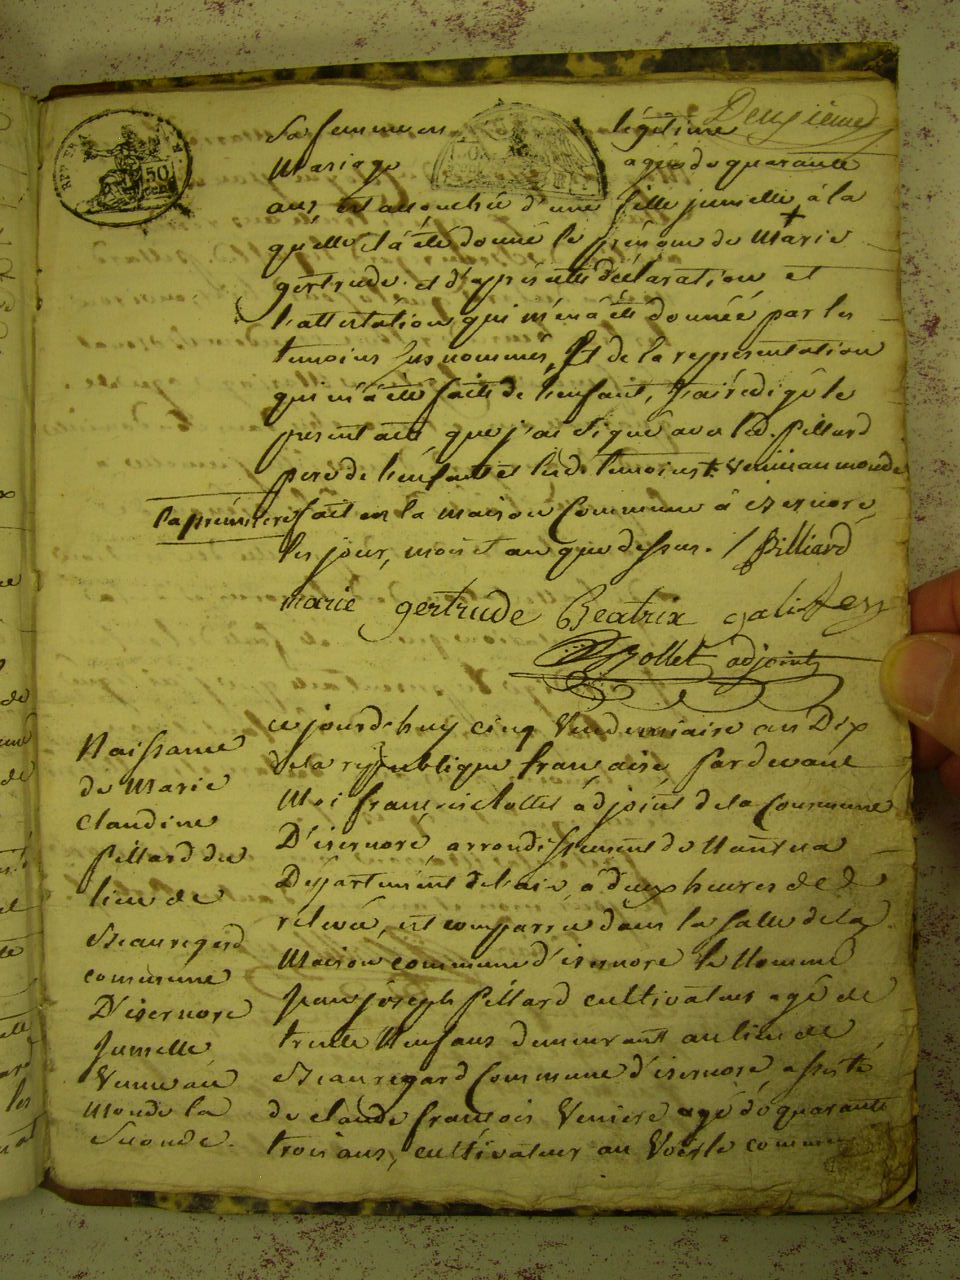 Deuxième
Sa femme en légitime
Mariage agée de quarante
ans, est accouchée d'une fille jumelle à la
quelle il à été donné le prénom de Marie
gertrude. et d'après cette déclaration et
l'attestation qui m'en à été donnée par les
temoins susnommés, Et de la representation
qui m'à été faite de l'enfant, J'ai rédigé le
present acte que j'ai signé avec led. pillard
pere de l'enfant et lesd. temoins + venue au monde
la première fait en la maison Commune à isernore
les jour, mois et an que dessus. / Billiard
marie gertrude Beatrix
Rollet adjoint
Naissance
de Marie
claudine
pillard du
lieu de
Beauregard
commune
D'isernore
Jumelle
Venue au
Monde la
Seconde.
cejourd'huy cinq Vendemiaire an Dix
de la republique francaise pardevant
Moi francois Rollet adjoint de la Commune
D'isernore arrondissement de Nantua
Département de l'ain, à deux heures de
relevée, est comparu dans la salle de la
Maison commune d'isernore le Nommé
Jean joseph pillard cultivateur agé de
trente Neuf ans demeurant au lieu de
Beauregard Commune d'isernore assisté
de claude francois Veniere agé de quarante
trois ans, cultivateur au Voerle commune
REP. FRA.
50
cen.